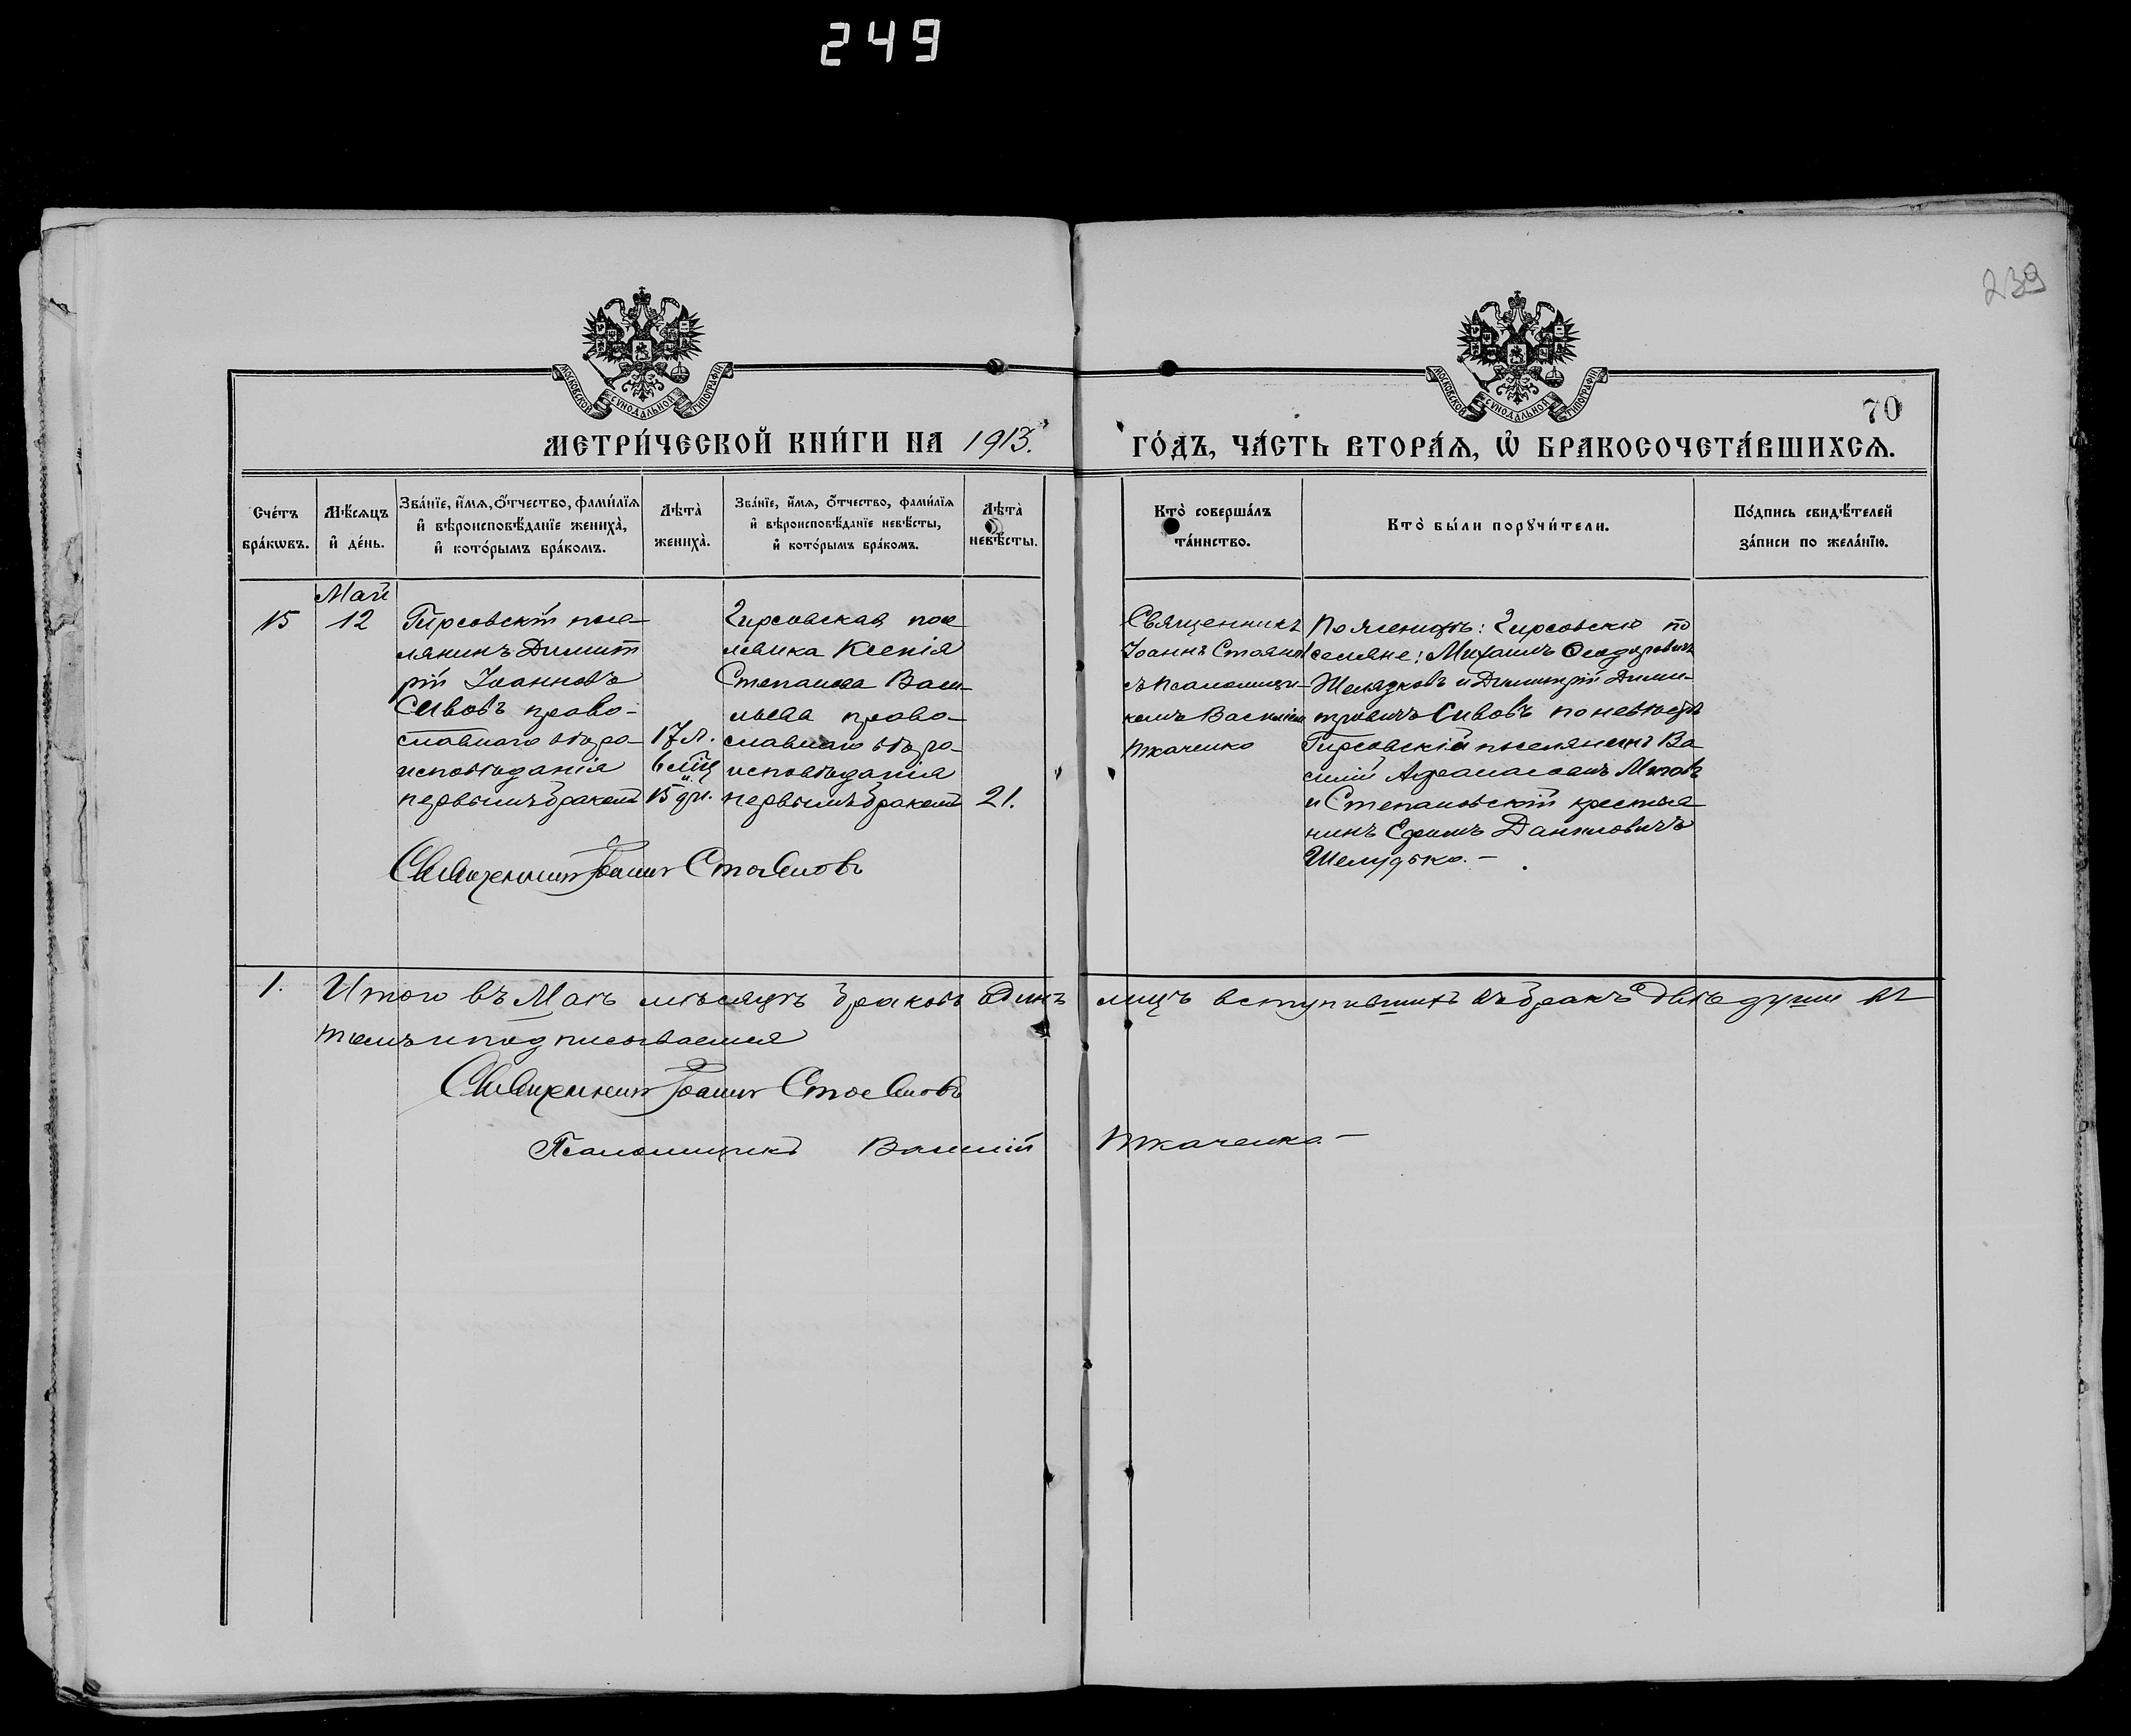 249
239
МОСКОВСКОЙ СУНОДАЛЬНОЙ ТИПОГРАФІИ
МОСКОВСКОЙ СУНОДАЛЬНОЙ ТИПОГРАФІИ
70
МЕТРИ́ЧЕСКОЙ КНИ́ГИ НА 1913.
ГО́ДЪ, ЧА́СТЬ ВТОРА́Ѧ, Ѡ҆ БРАКОСОЧЕТА́ВШИХСѦ.
Сче́тъ
бра́кѡвъ.
Мѣ́сѧцъ
и҆ де́нь.
Зва́нїе, и҆́мѧ, ѻ҆́тчество, фами́лїѧ
и҆ вѣроисповѣ́данїе жениха̀,
и҆ кото́рымъ бра́комъ.
Лѣта̀
жениха̀.
Зва́нїе, и҆́мѧ, ѻ҆́тчество, фами́лїѧ
и҆ вѣроисповѣ́данїе невѣ́сты,
и҆ кото́рымъ бра́комъ.
Лѣта̀
невѣ́сты.
Кто̀ соверша́лъ
та́инство.
Кто̀ бы́ли порꙋчи́тели.
По́дпись свидѣ́телей
за́писи по жела́нїю.
Май
15
12
Гирсовскій посе-
лянинъ Димит
рій Іоанновъ
Сивовъ право-
славнаго вѣро-
исповѣданія
первымъ бракомъ
17 л.
6 мѣц
и
15 дн.
Чирсовская посе
лянка Ксенія
Степанова Васи-
льева право-
славнаго вѣро-
исповѣданія
первымъ бракомъ
21.
Священникъ
Іоаннъ Стояновъ
съ псаломщи-
комъ Василіемъ
Ткаченко
По женихѣ: Чирсовскіе по
селяне: Михаилъ Ѳеодоровичъ
Желязковъ и Димитрій Дими-
тровичъ Сивовъ по невѣстѣ
Гирсовскій поселянинъ Ва
силій Афанасовичъ Митовъ
и Степановскій крестья
нинъ Ефимъ Даниловичъ
Шелудько. —
Священникъ Іоаннъ Стояновъ
1.
Итого въ Маѣ мѣсяцѣ браковъ одинъ лицъ вступившихъ въ бракъ двѣ души въ
томъ и подписываемся
Священникъ Іоаннъ Стояновъ
Псаломщикъ Василій Ткаченко. —